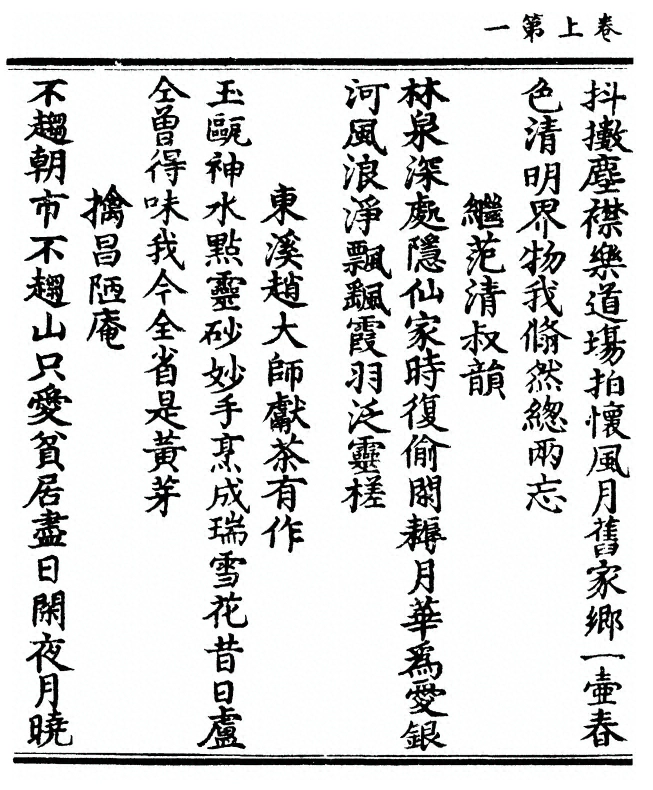 卷上第一
抖擻塵襟樂道場拍懷風月舊家鄉一壺春
色清明界物我翛然緫兩忘
繼范清叔韻
林泉深處隱仙家時復偷閑耨月華爲愛銀
河風浪淨飄飖霞羽泛靈槎
東溪趙大師獻茶有作
玉甌神水點靈砂妙手烹成瑞雪花昔日盧
仝曾得味我今全省是黃芽
擒昌陋庵
不趨朝市不趨山只愛貧居盡日閑夜月曉